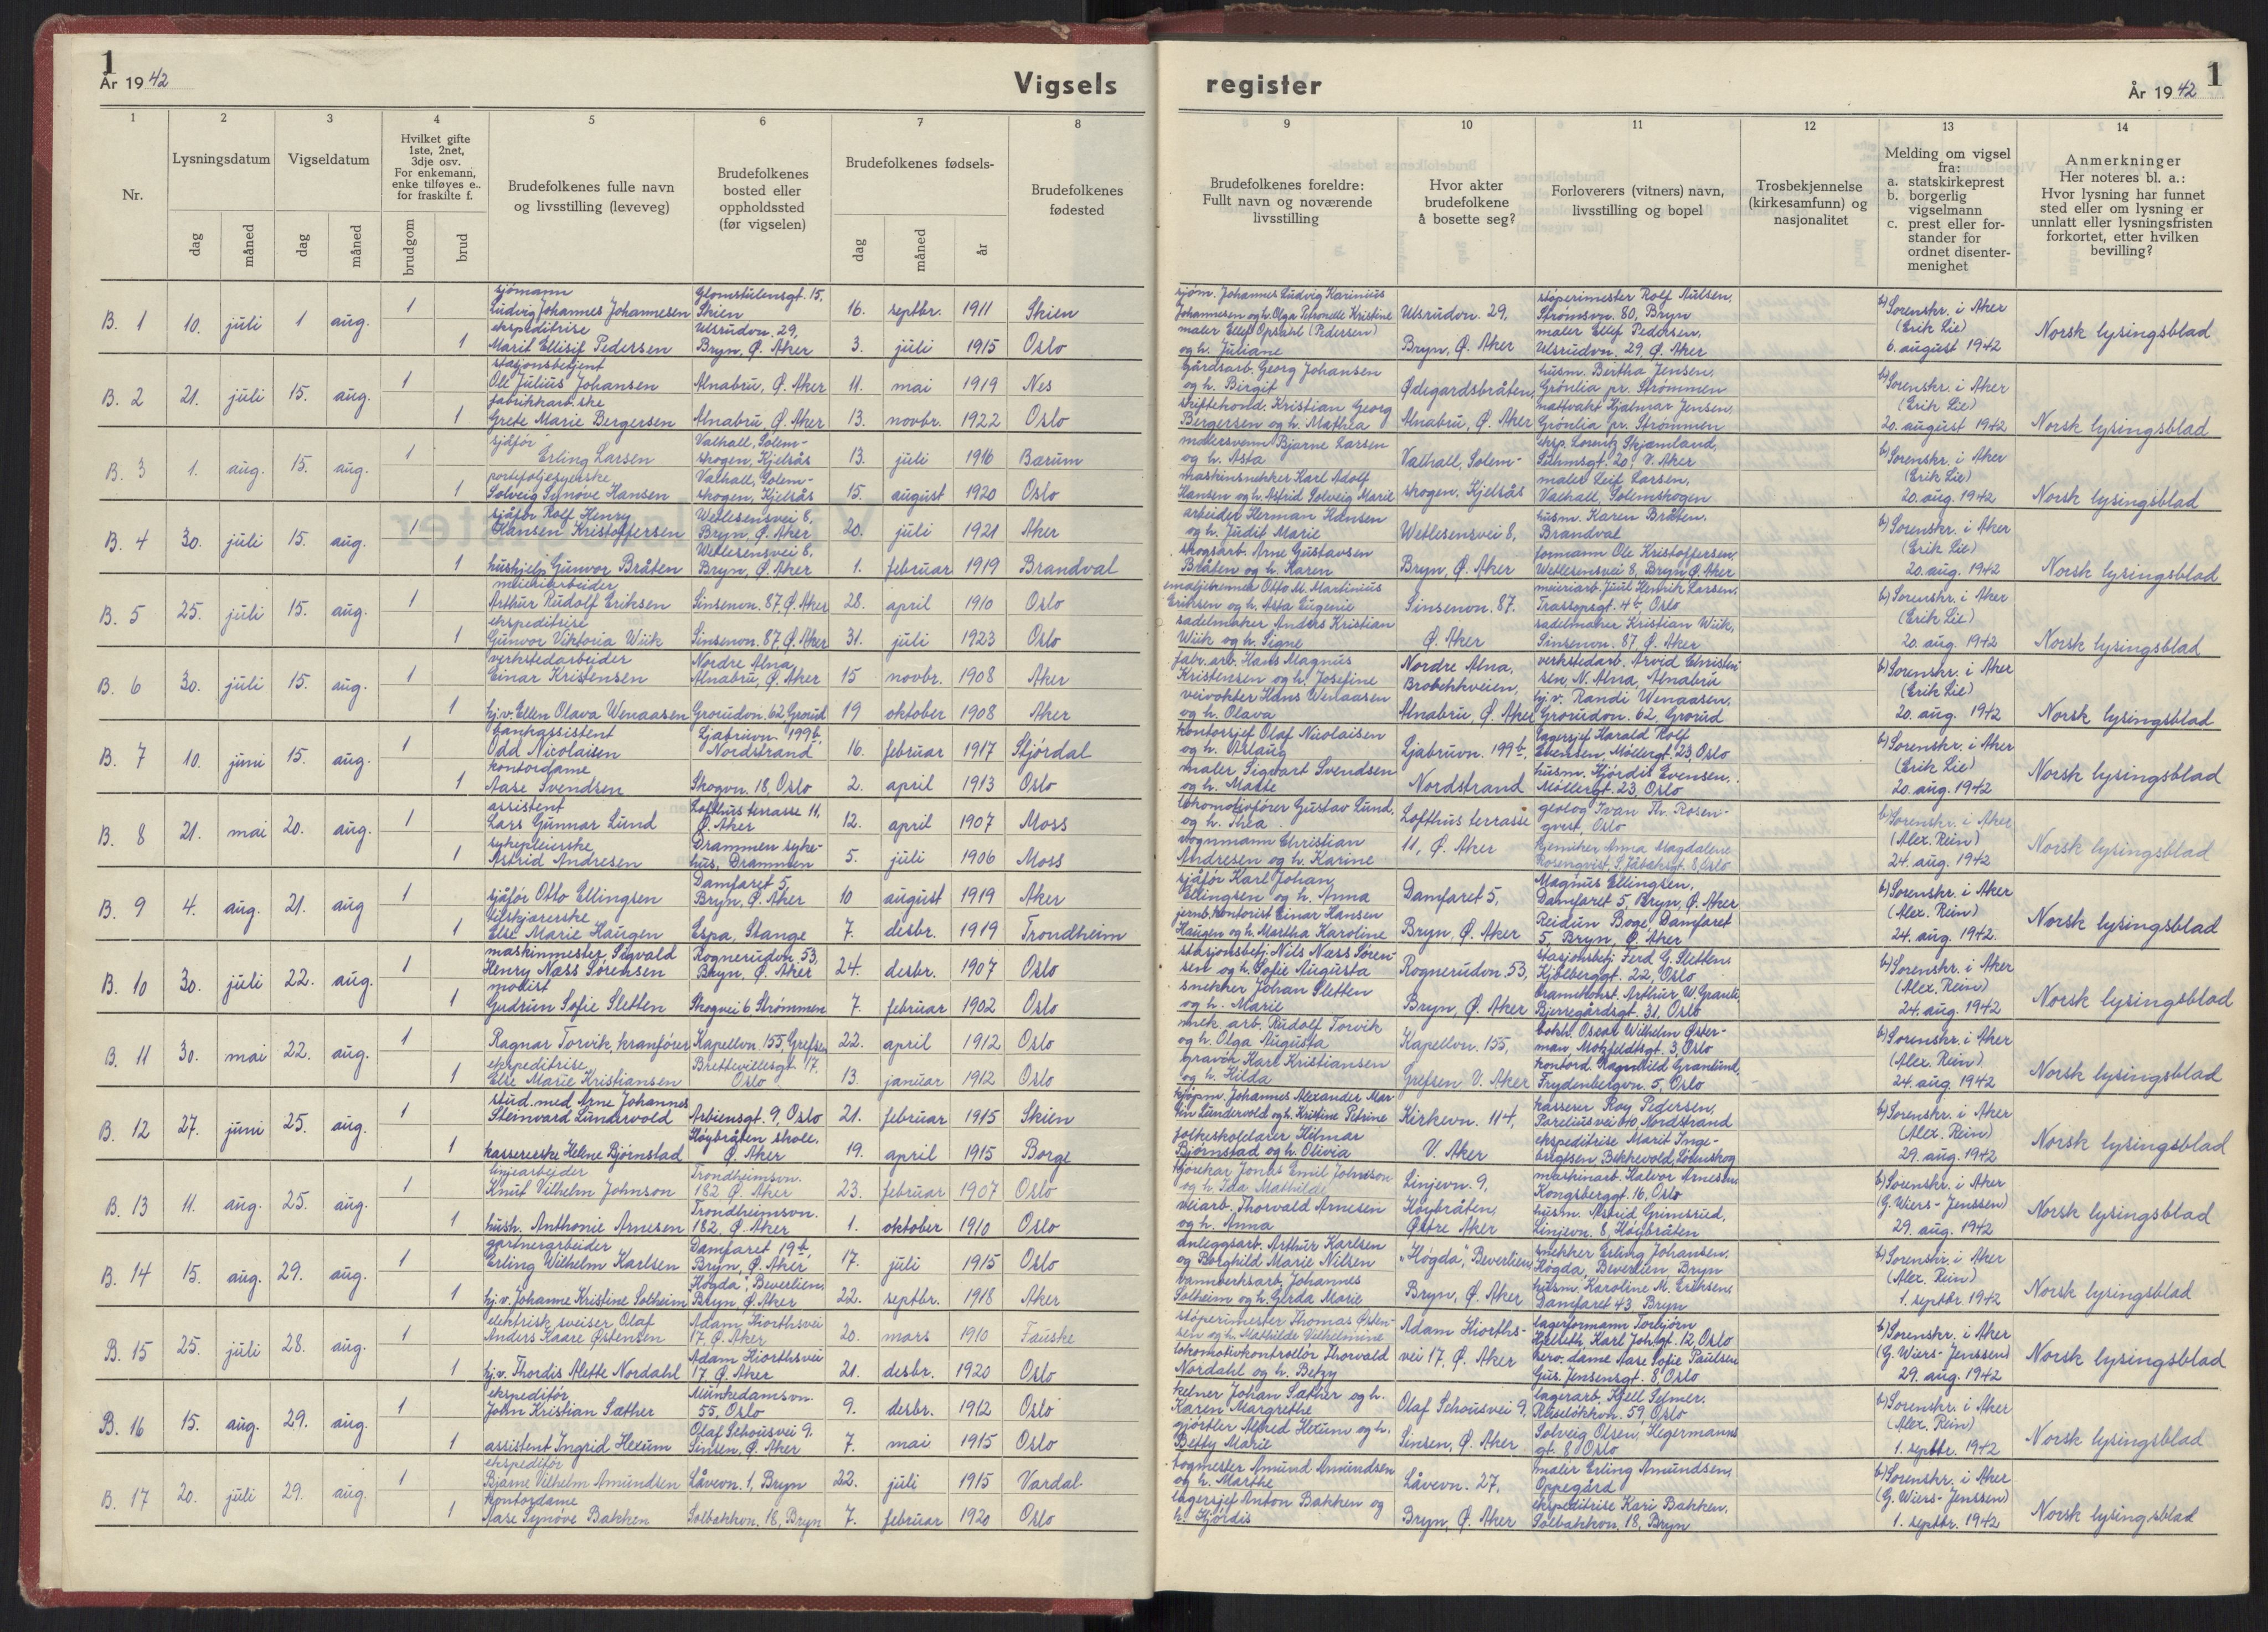 1
År 1942
Vigsels
register
1
År 1942
1
2
3
4
5
6
7
8
9
10
11
12
13
14
Nr.
Lysningsdatum
Vigseldatum
Hvilket gifte
1ste, 2net,
3dje osv.
For enkemann,
enke tilføyes e..
for fraskilte f.
Brudefolkenes fulle navn
og livsstilling (leveveg)
Brudefolkenes
bosted eller
oppholdssted
(før vigselen)
Brudefolkenes fødsels-
Brudefolkenes
fødested
dag
måned
dag
måned
brudgom
brud
dag
måned
år
Brudefolkenes foreldre:
Fullt navn og noværende
livsstilling
Hvor akter
brudefolkene
å bosette seg?
Forloverers (vitners) navn,
livsstilling og bopel
Trosbekjennelse
(kirkesamfunn) og
nasjonalitet
Melding om vigsel
fra:
a. statskirkeprest
b. borgerlig
vigselmann
c. prest eller for-
stander for
ordnet disenter-
menighet
Anmerkninger
Her noteres bl. a.:
Hvor lysning har funnet
sted eller om lysning er
unnlatt eller lysningsfristen
forkortet, etter hvilken
bevilling?
B. 1 10. juli 1 aug.
1 sjømann
Ludvig Johannes Johannesen
Glomstulensgt. 15,
Skien
16. septbr. 1911 Skien
1 ekspeditrise
Marit Ellisif Pedersen
Ulsrudvn. 29,
Bryn, Ø. Aker
3. juli 1915 Oslo
sjøm. Johannes Ludvig Karinius
Johannesen og h. Olga Petronelle Kristine
maler Ellef Opsahl (Pedersen)
og h. Juliane
Ulsrudvn. 29,
Bryn, Ø. Aker
støperimester Rolf
Strømsvn. 80, Bryn
maler Ellef Pedersen,
Ulsrudvn. 29, Ø. Aker
b) Sorenskr. i Aker
(Erik Lie)
6. august 1942
Norsk lysingsblad
B. 2 21. juli 15. aug.
1 stasjonsbetjent
Ole Julius Johansen
Alnabru, Ø. Aker
11. mai 1919 Nes
1 fabrikkarb.ske
Grete Marie Bergersen
Alnabru, Ø. Aker
13. novbr. 1922 Oslo
Gårdsarb. Georg Johansen
og h. Birgit
skiftekond. Kristian Georg
Bergersen og h. Mathea
Ødegardsbråten,
Alnabru, Ø. Aker
husm. Bertha Jensen,
Grønlia pr. Strømmen
nattvakt Hjalmar Jensen,
Grønlia pr. Strømmen
b) Sorenskr. i Aker
(Erik Lie)
20. august 1942
Norsk lysingsblad
B. 3 1. aug. 15. aug.
1 sjåfør
Erling Larsen
Valhall, Solem-
skogen, Kjelsås
13. juli 1916 Bærum
1 porteføljesyerske
Solveig Synøve Hansen
Valhall, Solem-
skogen, Kjelsås
15. august 1920 Oslo
malersvenn Bjarne Larsen
og h. Asta
maskinsnekker Karl Adolf
Hansen og h. Astrid Solveig Marie
Valhall, Solem-
skogen, Kjelsås
eksp. Lorentz Skjamland,
20, V. Aker
maler Leif Larsen,
Valhall, Solemskogen
b) Sorenskr. i Aker
(Erik Lie)
20. aug. 1942
Norsk lysingsblad
B. 4 30. juli 15. aug.
1 sjåfør Rolf Henry
Hansen Kristoffersen
Wetlesensvei 8,
Bryn, Ø. Aker
20. juli 1921 Aker
1 hushjelp Gunvor Bråten
Wetlesensvei 8,
Bryn, Ø. Aker
1. februar 1919 Brandval
arbeider Herman Hansen
og h. Judit Marie
skogsarb. Arne Gustavsen
Bråten og h. Karen
Wetlesensvei 8,
Bryn, Ø. Aker
husm. Karen Bråten,
Brandval
formann Ole Kristoffersen,
Wetlesensvei 8, Bryn Ø. Aker
b) Sorenskr. i Aker
(Erik Lie)
20. aug. 1942
Norsk lysingsblad
B. 5 25. juli 15. aug.
1 meieriarbeider
Arthur Rudolf Eriksen
Sinsenvn. 87, Ø. Aker
28. april 1910 Oslo
1 ekspeditrise
Gunvor Viktoria Wiik
Sinsenvn. 87, Ø. Aker
31. juli 1923 Oslo
emaljebrenner Otto M. Martinius
Eriksen og h. Asta Eugenie
sadelmaker Anders Kristian
Wiik og h. Signe
Sinsenvn. 87.
Ø. Aker
meieriarb. Juul Henrik Larsen,
Trassopsgt. 4b, Oslo
sadelmaker Kristian Wiik,
Sinsenvn. 87 Ø. Aker
b) Sorenskr. i Aker
(Erik Lie)
20. aug. 1942
Norsk lysingsblad
B. 6 30. juli 15. aug.
1 verkstedarbeider
Einar Kristensen
Nordre Alna,
Alnabru, Ø. Aker
15 novbr. 1908 Aker
1 hj.v. Ellen Olava Wenaasen
Grorudvn. 62 Grorud
19 oktober 1908 Aker
fabr.arb. Hans Magnus
Kristensen og h. Josefine
veivokter Hans Wenaasen
og h. Olava
Nordre Alna,
Brobekkveien,
Alnabru, Ø. Aker
verkstedarb. Arvid Christen-
sen N. Alna, Alnabru
hj.v. Randi Wenaasen,
Grorudvn. 62, Grorud
b) Sorenskr. i Aker
(Erik Lie)
20. aug. 1942
Norsk lysingsblad
B. 7 10. juni 15. aug.
1 bankassistent
Odd Nicolaisen
Ljabruvn. 199b,
Nordstrand
16. februar 1917 Stjørdal
1 kontordame
Aase Svendsen
Skogvn. 18, Oslo
2. april 1913 Oslo
kontorsjef Olaf Nicolaisen
og h. Aslaug
maler Sigvart Svendsen
og h. Marte
Ljabruvn. 199b,
Nordstrand
lagersjef Harald Rolf
Evensen, Møllergt. 23, Oslo
husm. Hjørdis Evensen,
Møllergt. 23, Oslo
b) Sorenskr. i Aker
(Erik Lie)
20. aug. 1942
Norsk lysingsblad
B. 8 21. mai 20. aug.
1 assistent
Lars Gunnar Lund
Lofthus terrasse 11,
Ø. Aker
12. april 1907 Moss
1 sykepleierske
Astrid Andresen
Drammen syke-
hus, Drammen
5. juli 1906 Moss
lokomotivfører Gustav Lund,
og h. Thea
vognmann Christian
Andresen og h. Karine
Lofthus terrasse
11, Ø. Aker
geolog Ivan Th. Rosen-
qvist, Oslo
kjemiker Anna Magdalene
Rosenqvist, 8, Oslo
b) Sorenskr. i Aker
(Alex. Rein)
24. aug. 1942
Norsk lysingsblad
B. 9 4. aug. 21. aug
1 sjåfør Otto Ellingsen
Damfaret 5,
Bryn, Ø. Aker
10 august 1919 Aker
1 tilskjærerske
Else Marie Haugen
Espa, Stange
7. desbr. 1919 Trondheim
sjåfør Karl Johan
Ellingsen og h. Anna
jernb.kontorist Einar Hansen
Haugen og h. Martha Karoline
Damfaret 5,
Bryn, Ø. Aker
Magnus Ellingsen,
Damfaret 5, Bryn, Ø. Aker
Reidun Boge, Damfaret
5, Bryn, Ø. Aker
b) Sorenskr. i Aker
(Alex. Rein)
24. aug. 1942.
Norsk lysingsblad
B. 10 30. juli 22. aug.
1 maskinmester Sigvald
Henry Næss Sørensen
Rognerudvn. 53,
Bryn, Ø. Aker
24. desbr. 1907 Oslo
1 modist
Gudrun Sofie Sletten
Skogvei 6, Strømmen
7. februar 1902 Oslo
stasjonsbetj. Nils Næss Søren-
sen og h. Sofie Augusta
snekker Johan Sletten
og h. Marie
Rognerudvn. 53,
Bryn, Ø. Aker
stasjonsbetj. Ferd. G. Sletten,
Kjølberggt. 22, Oslo
Arthur W.
Bjerregårdsgt. 31, Oslo
b) Sorenskr. i Aker
(Alex. Rein)
24. aug. 1942
Norsk lysingsblad
B. 11 30. mai 22. aug.
1 Ragnar Torvik, kranfører
Kapellvn. 155, Grefsen
22. april 1912 Oslo
1 ekspeditrise
Else Marie Kristiansen
Brettevillesgt. 17,
Oslo
13. januar 1912 Oslo
mek. arb. Rudolf Torvik
og h. Olga Augusta
gravør Karl Kristiansen
og h. Hilda
Kapellvn. 155,
Grefsen V. Aker
bokh. Oscar Wilhelm Øster-
man, Motzfeldtsgt. 3, Oslo
kontord. Ragnhild Granlund,
Frydenbergvn. 5, Oslo
b) Sorenskr. i Aker
(Alex. Rein)
24. aug. 1942
Norsk lysingsblad
B. 12 27. juni 25. aug.
1 stud. med. Arne Johannes
Steinvard Lundervold
Arbiensgt. 9, Oslo
21. februar 1915 Skien
1 kassererske Helene Bjørnstad
Høybråten skole,
Ø. Aker
19. april 1915 Borge
kjøpm. Johannes Alexander Mar-
tin Lundervold og h. Kristine Petrine
folkeskolelærer Hilmar
Bjørnstad og h. Olivia
Kirkevn. 114,
V. Aker
kasserer Roy Pedersen,
Pareliusvei Nordstrand
ekspeditrise Marit Inge-
brigtsen, Bekkevold, Lørenskog
b) Sorenskr. i Aker
(Alex. Rein)
29. aug. 1942
Norsk lysingsblad
B. 13 11. aug. 25. aug.
1 linjearbeider
Knut Vilhelm Johnson
Trondheimsvn.
182 Ø. Aker
23. februar 1907 Oslo
1 hush. Anthonie Arnesen
Trondheimsvn.
182, Ø. Aker
1. oktober 1910 Oslo
kjørekar Jonas Emil Johnson
og h. Ida Mathilde
veiarb. Thorvald Arnesen
og h. Anna
Linjevn. 9,
Høybråten,
Østre Aker
maskinarb. Halvor Arnesen,
Kongsberggt. 16, Oslo
husm. Astrid Grimsrud,
Linjevn. 8, Høybråten
b) Sorenskr. i Aker
(G. Wiers-Jenssen)
29. aug. 1942
Norsk lysingsblad
B. 14 15. aug. 29. aug.
1 gartnerarbeider
Erling Wilhelm Karlsen
Damfaret 19b,
Bryn, Ø. Aker
17. juli 1915 Oslo
1 hj.v. Johanne Kristine Solheim
"Høgda", Beverlien,
Bryn, Ø. Aker
22. septbr. 1918 Aker
anleggsarb. Arthur Karlsen
og Borghild Marie Nilsen
vannverksarb. Johannes
Solheim og h. Gerda Marie
"Høgda", Beverlien,
Bryn, Ø. Aker
snekker Erling Johansen,
Høgda, Beverlien Bryn
husm. Karoline M. Eriksen,
Damfaret 43, Bryn
b) Sorenskr. i Aker
(Alex. Rein)
1. septbr. 1942
Norsk lysingsblad
B. 15 25. juli 28. aug.
1 elektrisk sveiser Olaf
Anders Kaare Østensen
Adam Hiorthsvei
17, Ø. Aker
20. mars 1910 Fauske
1 hj.v. Thordis Alette Nordahl
Adam Hiorthsvei
17 Ø. Aker
21. desbr. 1920 Oslo
støperimester Thomas Østen-
sen og h. Mathilde Vilhelmine
lokomotivkontrollør Thorvald
Nordahl og h. Betzy
Adam Hiorths-
vei 17, Ø. Aker
lagerformann Torbjørn
Helseth, Karl Joh.gt. 12, Oslo
kero. dame Aase Sofie Paulsen
Gus. Jensensgt. 8 Oslo
b) Sorenskr. i Aker
(G. Wiers-Jenssen)
29. aug. 1942
Norsk lysingsblad
B. 16 15. aug. 29. aug.
1 ekspeditør
John Kristian Sæther
Munkedamsvn.
55, Oslo
9. desbr. 1912 Oslo
1 assistent Ingrid Hexum
Olaf Schousvei 9,
Sinsen, Ø. Aker
7. mai 1915 Oslo
kelner Johan Sæther og h.
Karen Margrethe
gjørtler Alfred Hexum og h.
Betty Marie
Olaf Schousvei 9,
Sinsen, Ø. Aker
lagerarb. Kjell Selmer,
Ruseløkkvn. 59, Oslo
Solveig Olsen, Hegermanns
gt. 8 Oslo
b) Sorenskr. i Aker
(Alex. Rein)
1. septbr. 1942
Norsk lysingsblad
B. 17 20. juli 29. aug.
1 ekspeditør
Bjarne Vilhelm Amundsen
Låvevn. 1, Bryn
22. juli 1915 Vardal
1 kontordame
Aase Synøve Bakken
Solbakkvn. 18, Bryn
7. februar 1920 Oslo
togmester Amund Amundsen
og h. Marthe
lagersjef Anton Bakken og
h. Hjørdis
Låvevn. 27,
Bryn, Ø. Aker
maler Erling Amundsen,
Oppegård
ekspeditrise Kari Bakken,
Solbakkvn. 18, Bryn
b) Sorenskr. i Aker
(G. Wiers-Jenssen)
1. septbr. 1942
Norsk lysingsblad